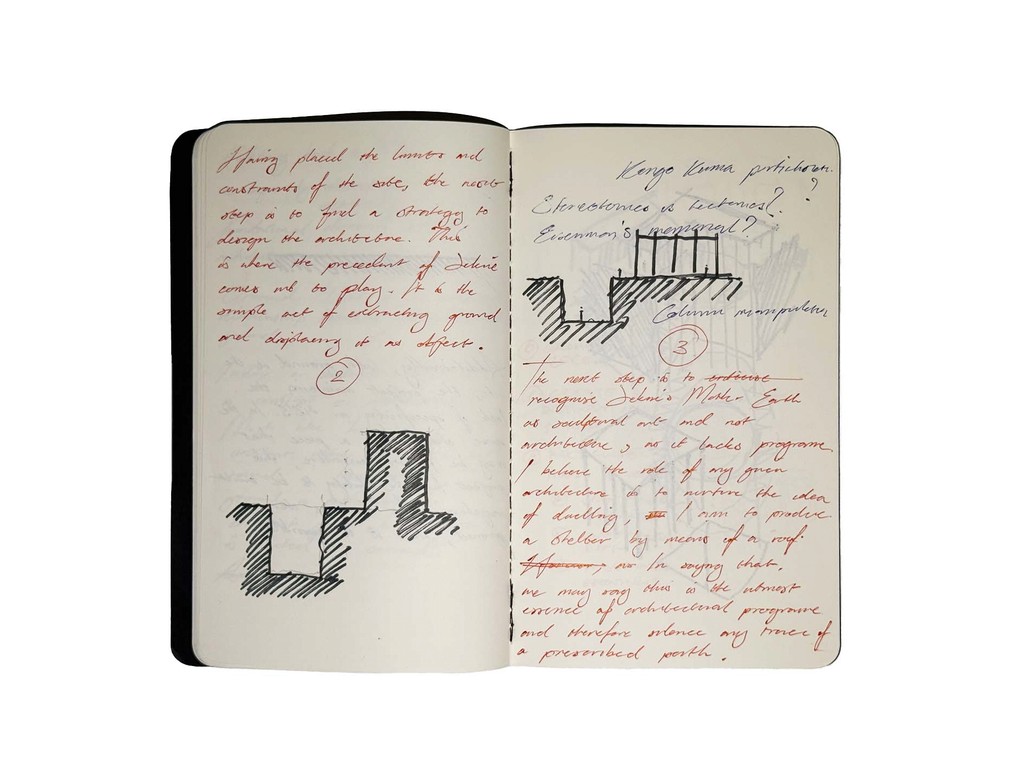 Having placed the limits and
constraints of the site, the next
step is to find a strategy to
design the architecture. This
is where the precedent of Sekine
comes in to play. It is the
simple act of extracting ground
and displacing it as object.
2
Kengo Kuma
?
Stereotomics vs tectonics?
Eisenman's memorial?
Column manipulation
3
The next step is to
recognise Sekine's Mother Earth
as sculptural art and not
architecture, as it lacks programme
I believe the role of any given
architecture is to nurture the idea
of dwelling, I aim to produce
a shelter by means of a roof.
as In saying that,
we may say this is the utmost
essence of architectural programme
and therefore silence any trace of
a prescribed path.